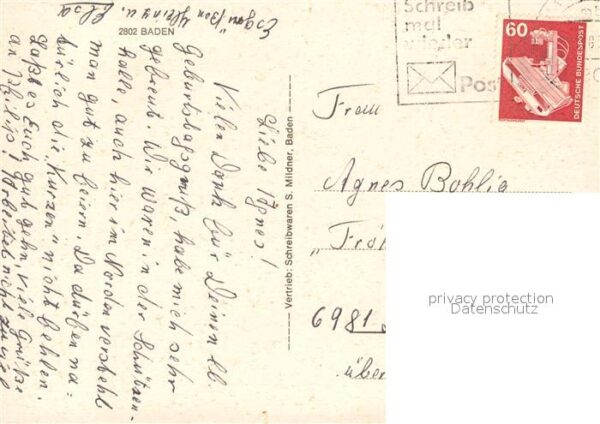 2802 BADEN
Liebe Agnes!
Vielen Dank für Deinen lb
Geburtstagsgruß, habe mich sehr
gefreut. Wir waren in der Schützen-
halle, auch hier im Norden versteht
man gut zu feiern. Da dürfen na=
türlich die "Kurzen" nicht fehlen.
Laßt es Euch gut gehn, viele Grüße
an Philip! Arbeitet nicht zuviel
Heinz u. Elsa
Vertrieb: Schreibwaren S. Mildner, Baden
Schreib
mal
wieder
Post
60
DEUTSCHE BUNDESPOST
Frau
Agnes Bohlig
6981
über
privacy protection
Datenschutz